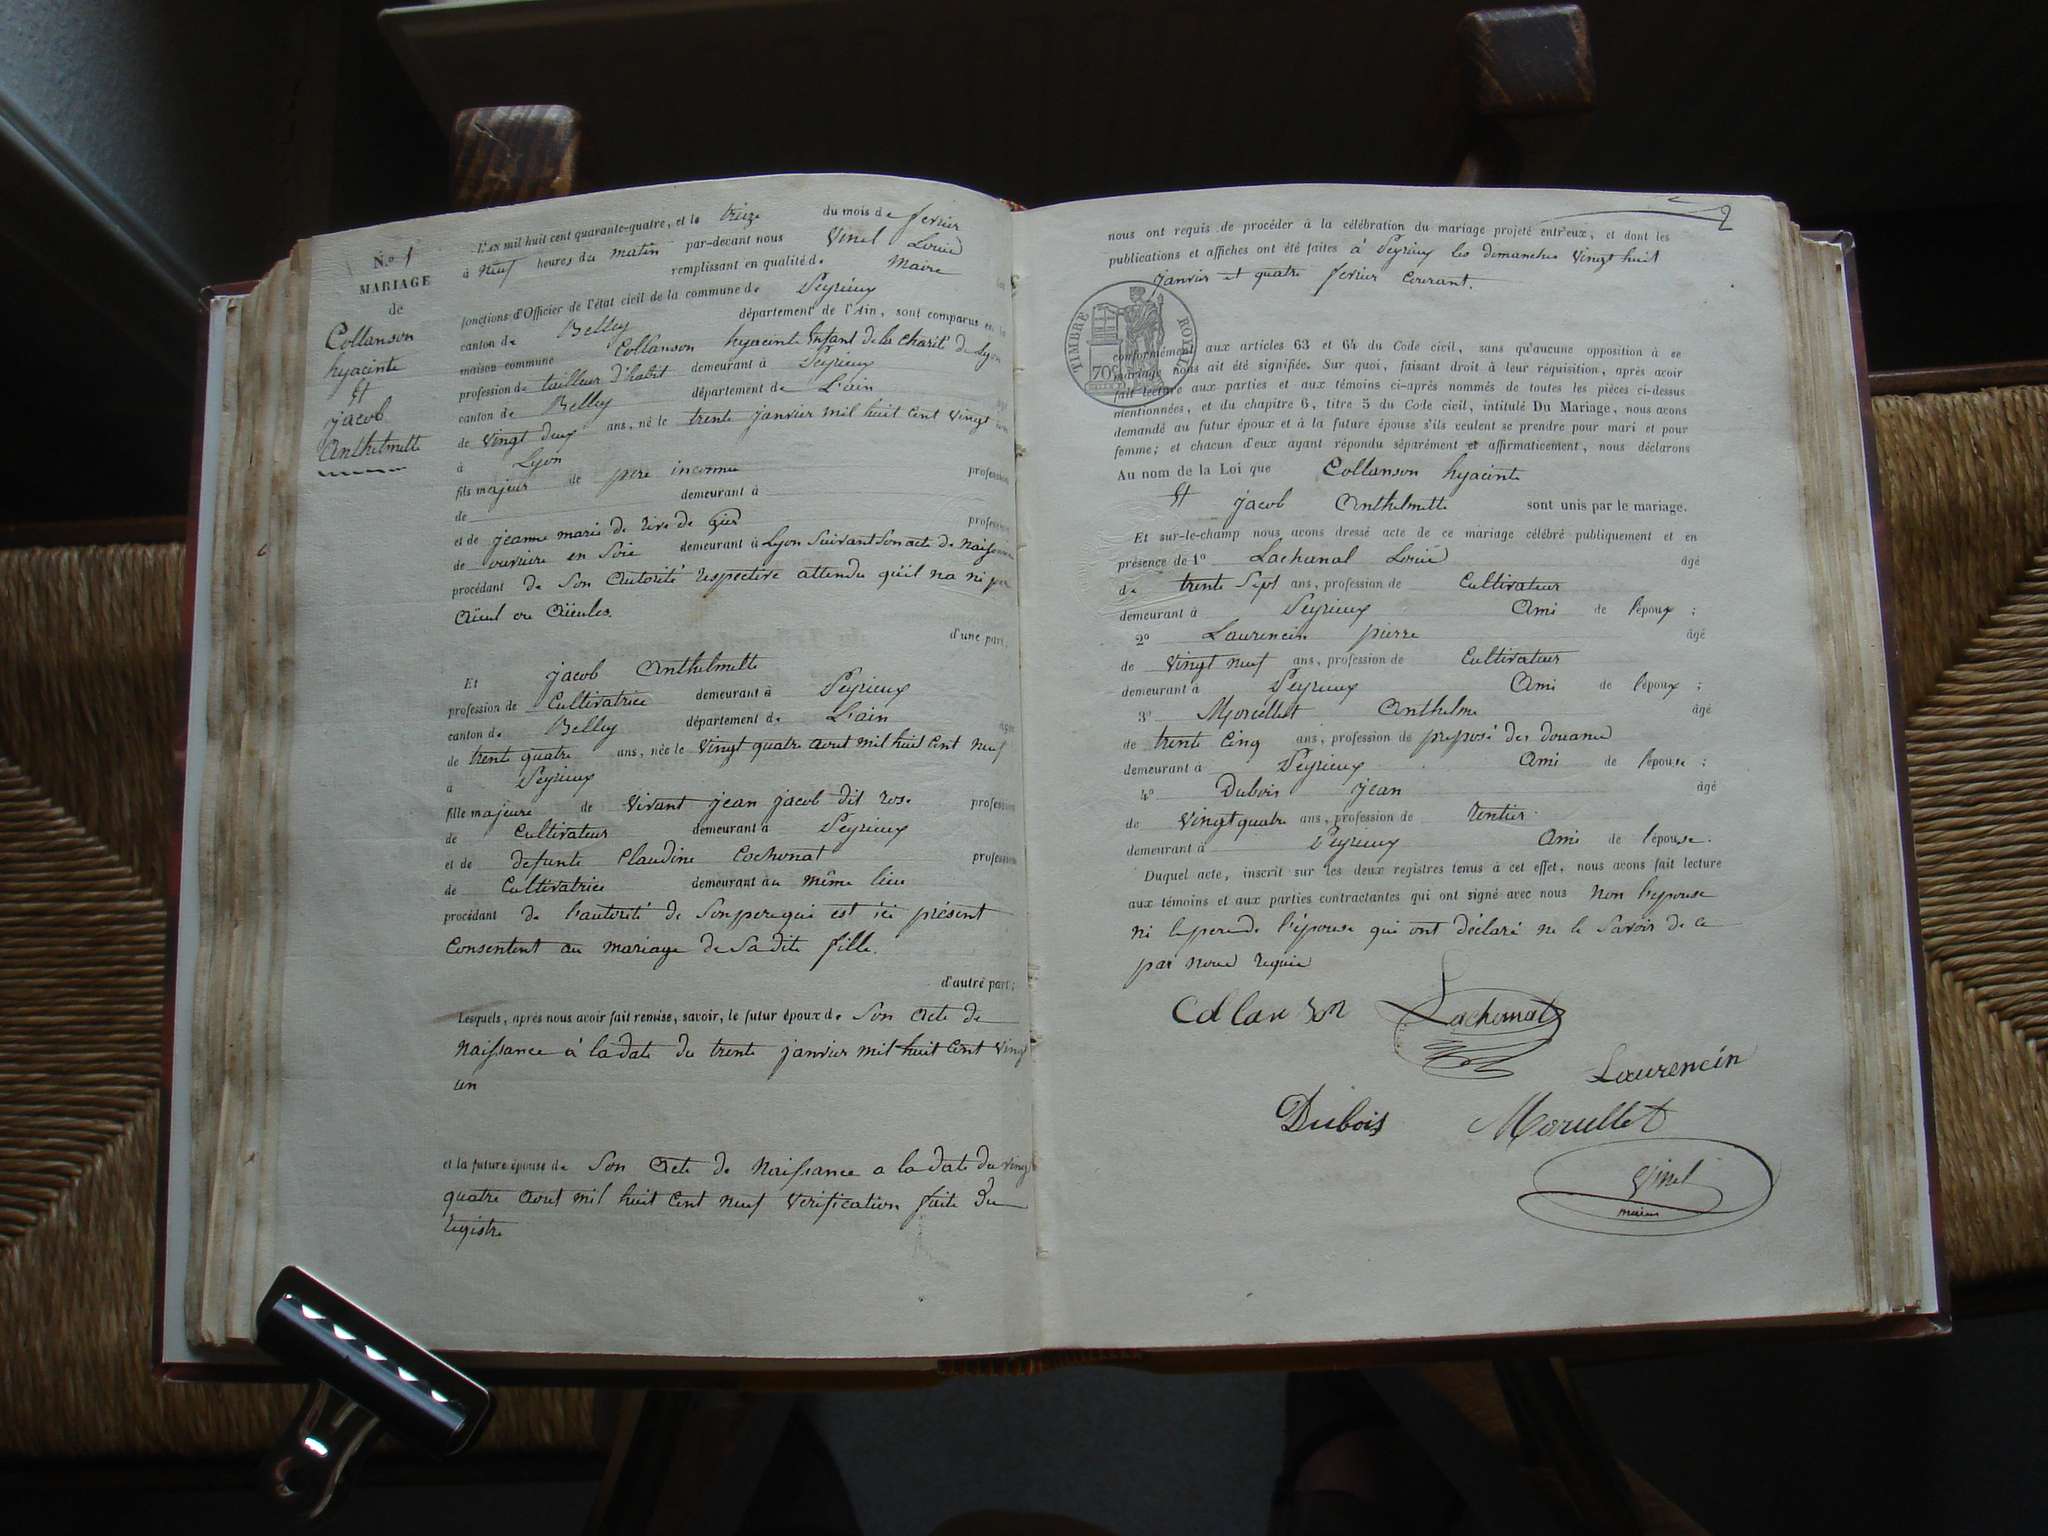 N.º 1
MARIAGE
de
Collanson
hyacinte
Et
jacob
Anthelmette
L'AN mil huit cent quarante-quatre, et le treize du mois de fevrier
à neuf heures du matin par-devant nous Vinel Louis
remplissant en qualité de Maire
fonctions d'Officier de l'état civil de la commune de Peyrieux
canton de Belley département de l'Ain, sont comparus en la
maison commune Collanson hyacinte Enfant de la Charité de Lyon
profession de tailleur d'habit demeurant à Peyrieux
canton de Belley département de L'ain
de vingt deux ans, né le trente janvier mil huit cent vingt un
à Lyon
fils majeur de pere inconnu profession
de demeurant à
et de jeanne marie de rive de gier profession
de ouvriere en Soie demeurant à Lyon Suivant Son acte de Naissance
procédant de Son Autorité respective attendu qu'il na ni pere
Aïeul ou Aïeules.
d'une part,
Et jacob Anthelmette
profession de Cultivatrice demeurant à Peyrieux
canton de Belley département de L'ain âgée
de trente quatre ans, née le Vingt quatre aout mil huit Cent neuf
à Peyrieux
fille majeure de Vivant jean jacob dit rose profession
de Cultivateur demeurant à Peyrieux
et de defunte Claudine Cochonat profession
de Cultivatrice demeurant au même lieu
procédant de l'autorité de Son pere qui est ici présent
Consentent au mariage de Sa dite fille.
d'autre part;
Lesquels, après nous avoir fait remise, savoir, le futur époux de Son Acte de
Naissance à la date du trente janvier mil huit Cent Vingt
un
et la future épouse de Son Acte de Naissance a la date du vingt
quatre Aout mil huit Cent neuf Vérification faite du
registre
2
nous ont requis de procéder à la célébration du mariage projeté entr'eux, et dont les
publications et affiches ont été faites à Peyrieux les dimanches vingt huit
janvier et quatre fevrier Courant.
TIMBRE ROYAL
70c
conformément aux articles 63 et 64 du Code civil, sans qu'aucune opposition à ce
mariage nous ait été signifiée. Sur quoi, faisant droit à leur réquisition, après avoir
fait lecture aux parties et aux témoins ci-après nommés de toutes les pièces ci-dessus
mentionnées, et du chapitre 6, titre 5 du Code civil, intitulé Du Mariage, nous avons
demandé au futur époux et à la future épouse s'ils veulent se prendre pour mari et pour
femme; et chacun d'eux ayant répondu séparément et affirmativement, nous déclarons
Au nom de la Loi que Collanson hyacinte
Et jacob Anthelmette sont unis par le mariage.
Et sur-le-champ nous avons dressé acte de ce mariage célébré publiquement et en
présence de 1º Lachanal Louis âgé
de trente Sept ans, profession de Cultivateur
demeurant à Peyrieux Ami de l'époux ;
2º Laurencin pierre âgé
de Vingt neuf ans, profession de Cultivateur
demeurant à Peyrieux Ami de l'époux ;
3º Morellet Anthelme âgé
de trente Cinq ans, profession de preposé des douanes
demeurant à Peyrieux Ami de l'épouse ;
4º Dubois jean âgé
de Vingt quatre ans, profession de rentier
demeurant à Peyrieux Ami de l'épouse.
Duquel acte, inscrit sur les deux registres tenus à cet effet, nous avons fait lecture
aux témoins et aux parties contractantes qui ont signé avec nous Non l'epouse
ni le pere de l'épouse qui ont déclaré ne le Savoir de ce
par nous requis
Collanson Lachanal
Laurencin
Dubois Morellet
Vinel
maire